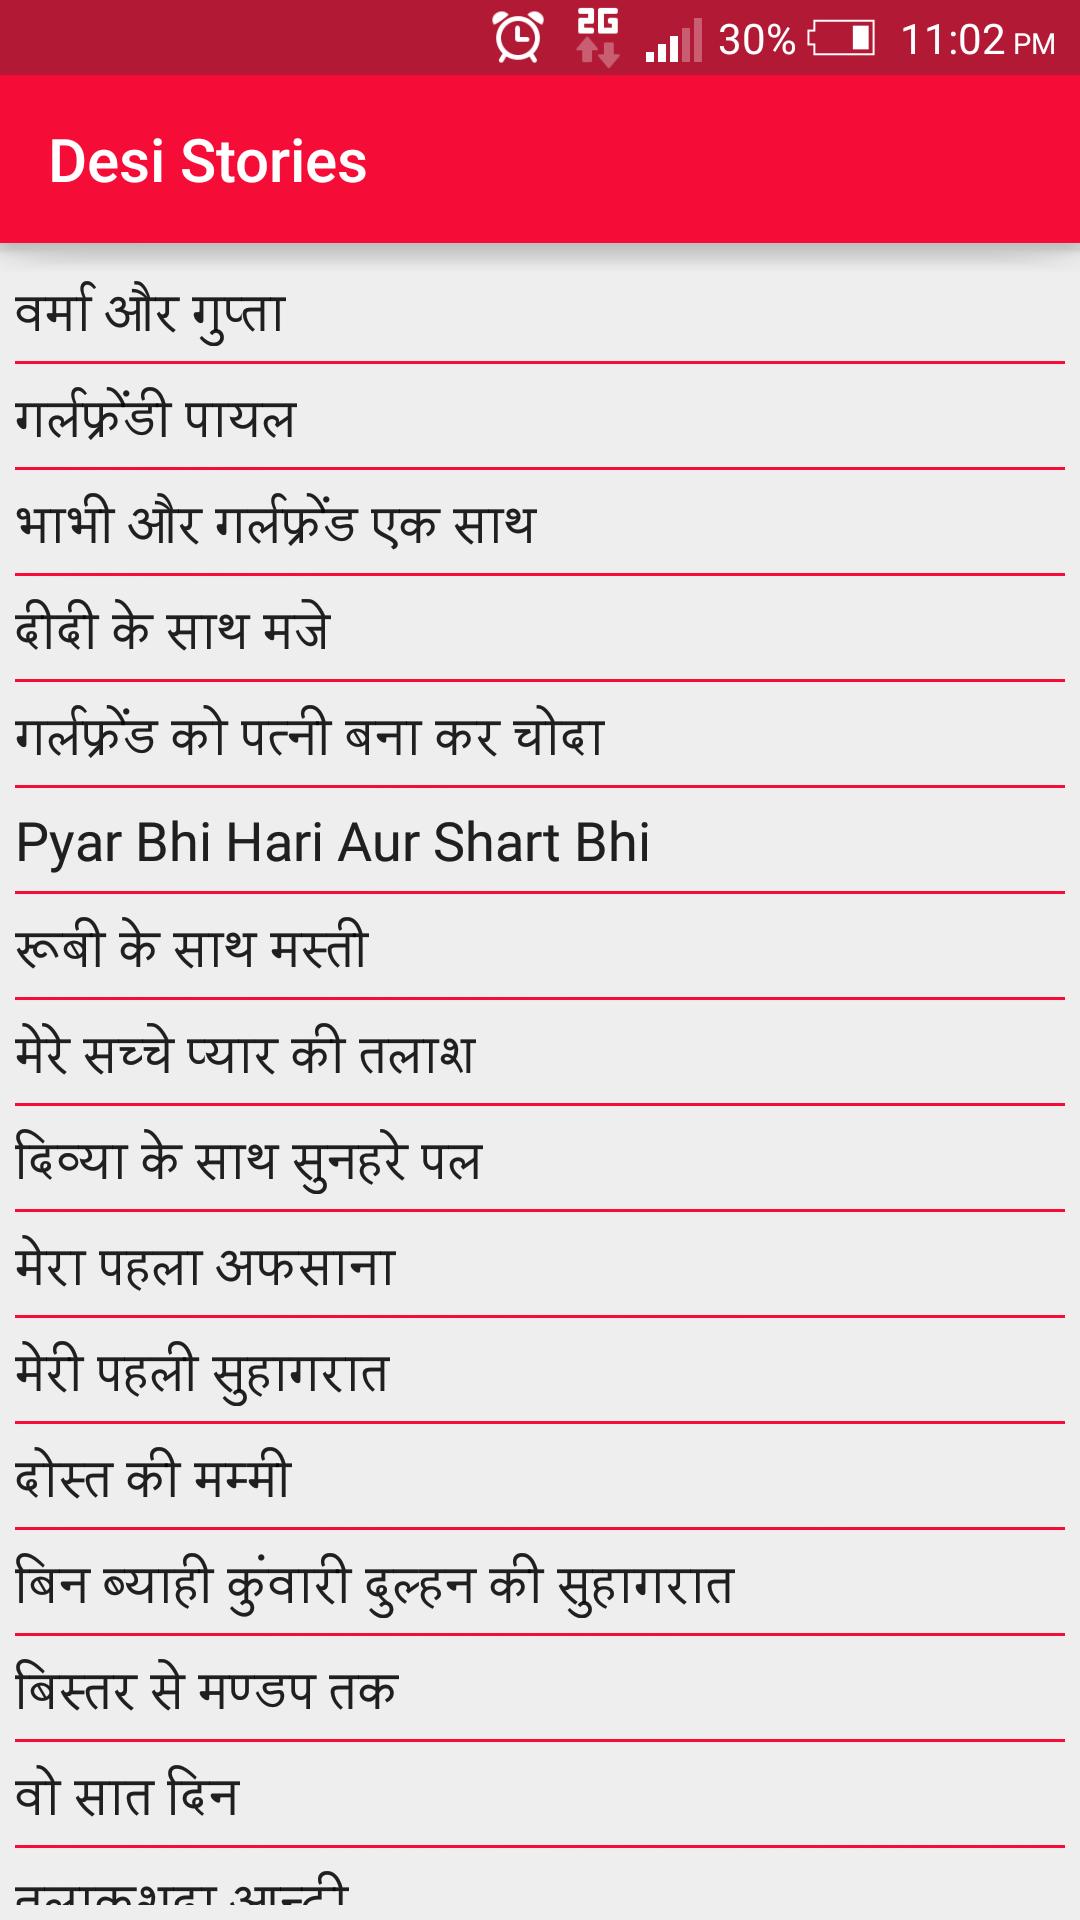 2G 30% 11:02 PM
Desi Stories
वर्मा और गुप्ता
गर्लफ्रेंडी पायल
भाभी और गर्लफ्रेंड एक साथ
दीदी के साथ मजे
गर्लफ्रेंड को पत्नी बना कर चोदा
Pyar Bhi Hari Aur Shart Bhi
रूबी के साथ मस्ती
मेरे सच्चे प्यार की तलाश
दिव्या के साथ सुनहरे पल
मेरा पहला अफसाना
मेरी पहली सुहागरात
दोस्त की मम्मी
बिन ब्याही कुंवारी दुल्हन की सुहागरात
बिस्तर से मण्डप तक
वो सात दिन